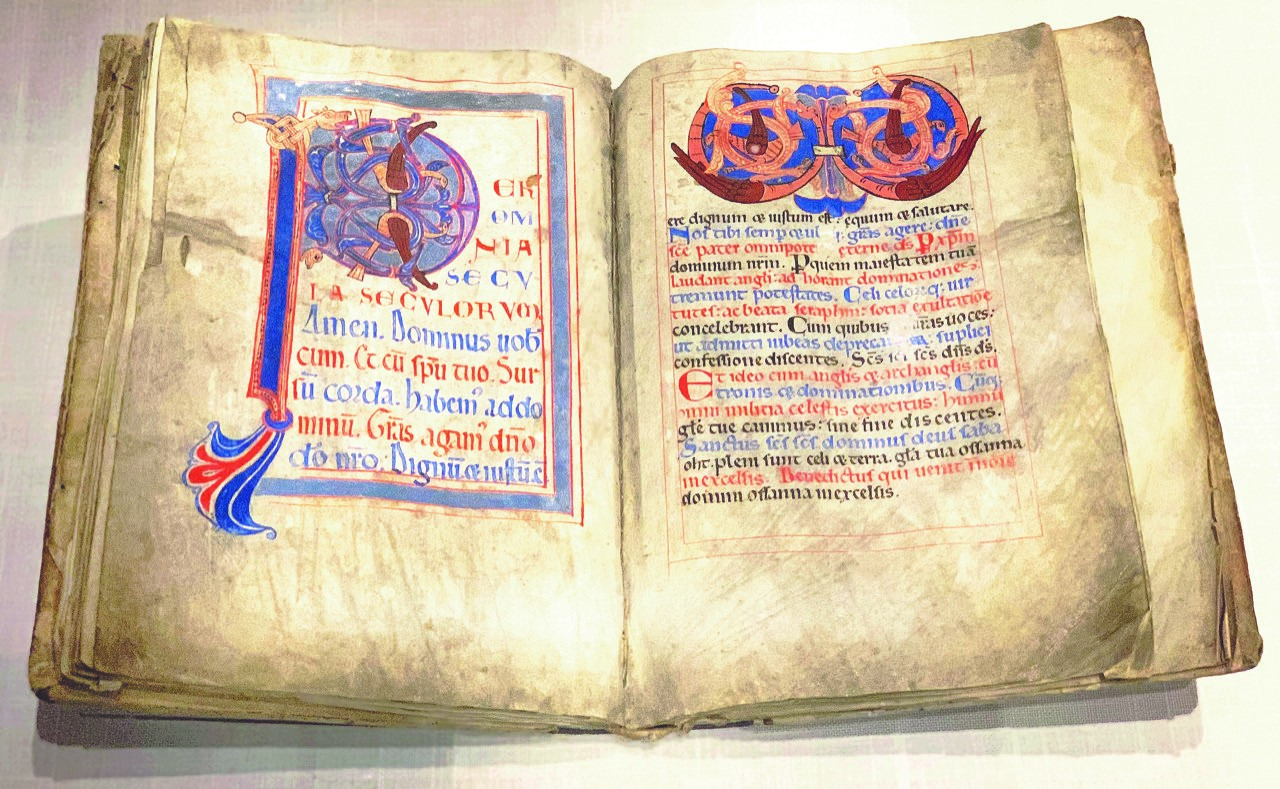 P ER
OM
NIA
SECV
LA SECVLORVM
Amen. Dominus uob
cum. Et cū spū tuo. Sur
sū corda. habemꝰ addo
minū. Grãs agamꝰ dño
dõ nr̃o. Dignū ⁊ iustū ē
ere dignum ⁊ iustum est: equum ⁊ salutare.
Nos tibi semp grãs agere: dñe
sc̃e pater omnipote eterne dš Per xp̃m
dominum nr̃m. Per quem maiestatem tuā
laudant angli: ad horant dominationes:
tremunt potestates. Celi celorꝫq: uir
tutes: ac beata seraphin: sotia exultatiõe
concelebrant. Cum quibus uoces:
ut admitti iubeas deprecam supplici
confessione discentes. Sc̃s sc̃s dñs dš.
Et ideo cum anglis ⁊ archanglis: cū
tronis ⁊ dominationibus. Cūq:
omni militia celestis exercitus: himnū
glẽ tue canimus: sine fine discentes.
Sanctus sc̃s sc̃s dominus deus saba
oht. pleni sunt celi ⁊ terra. glã tua ossanna
inexcelsis. Benedictus qui uenit
domini ossanna inexcelsis.